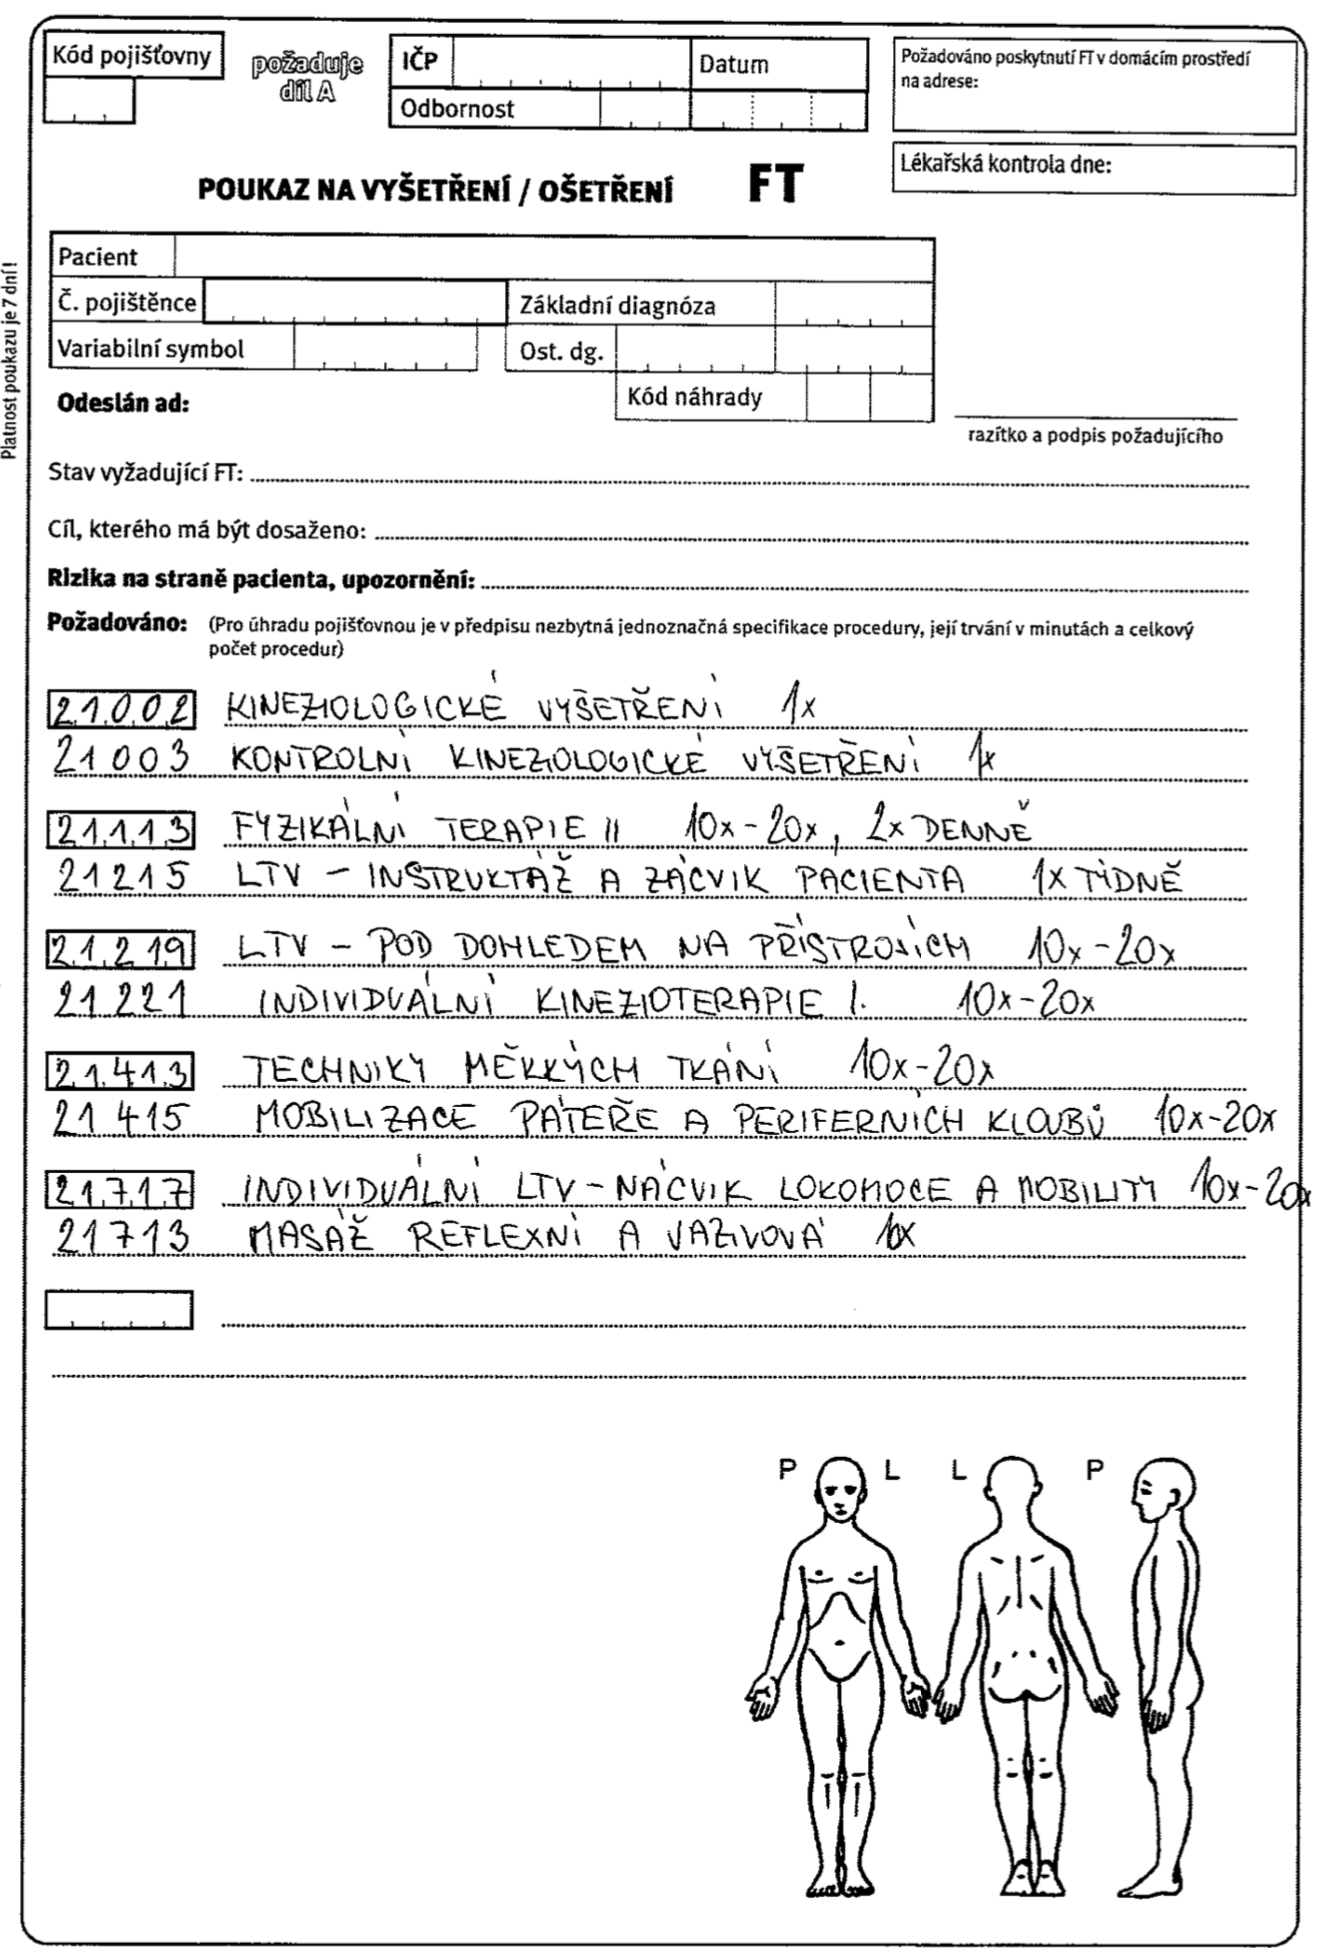 Kód pojišťovny
požaduje
díl A
IČP
Datum
Odbornost
Požadováno poskytnutí FT v domácím prostředí
na adrese:
Lékařská kontrola dne:
POUKAZ NA VYŠETŘENÍ / OŠETŘENÍ FT
Platnost poukazu je 7 dní!
Pacient
Č. pojištěnce
Základní diagnóza
Variabilní symbol
Ost. dg.
Odeslán ad:
Kód náhrady
razítko a podpis požadujícího
Stav vyžadující FT:
Cíl, kterého má být dosaženo:
Rizika na straně pacienta, upozornění:
Požadováno: (Pro úhradu pojišťovnou je v předpisu nezbytná jednoznačná specifikace procedury, její trvání v minutách a celkový
počet procedur)
21002 KINEZIOLOGICKÉ VYŠETŘENÍ 1x
21003 KONTROLNÍ KINEZIOLOGICKÉ VYŠETŘENÍ 1x
21113 FYZIKÁLNÍ TERAPIE II 10x-20x, 2x DENNĚ
21215 LTV - INSTRUKTÁŽ A ZÁCVIK PACIENTA 1x TÝDNĚ
21219 LTV - POD DOHLEDEM NA PŘÍSTROJÍCH 10x-20x
21221 INDIVIDUÁLNÍ KINEZIOTERAPIE I. 10x-20x
21413 TECHNIKY MĚKKÝCH TKÁNÍ 10x-20x
21415 MOBILIZACE PÁTEŘE A PERIFERNÍCH KLOUBŮ 10x-20x
21717 INDIVIDUÁLNÍ LTV - NÁCVIK LOKOMOCE A MOBILITY 10x-20x
21713 MASÁŽ REFLEXNÍ A VAZIVOVÁ
P L L P